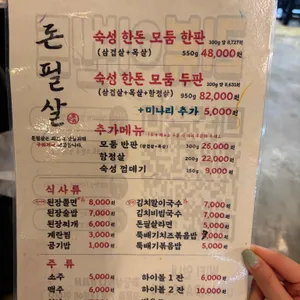 돈필살
숙성 한돈 모듬 한판 100g 당 8,727원
(삼겹살+목살) 550g 48,000원
숙성 한돈 모듬 두판 100g 당 8,632원
(삼겹살+목살+항정살) 950g 82,000원
+미나리 추가 5,000원
추가메뉴
모듬 반판 (삼겹살+목살) 300g 26,000원
항정살 200g 22,000원
숙성 껍데기 150g 9,000원
식사류
된장쫄면 8,000원
된장술밥 7,000원
된장찌개 6,000원
계란찜 3,000원
공기밥 1,000원
김치말이국수 7,000원
김치비빔국수 7,000원
돈필살라면 5,000원
뚝배기치즈볶음밥 5,000원
뚝배기볶음밥 5,000원
주류
소주 5,000원
맥주 5,000원
하이볼 1잔 6,000원
하이볼 2잔 10,000원